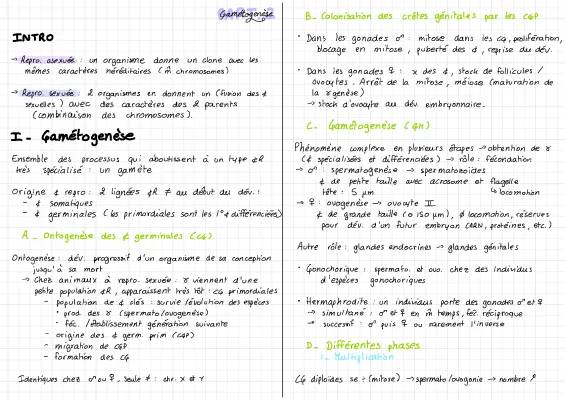 Gamétogenèse
INTRO
→ Repro. asexuée : un organisme donne un clone avec les
mêmes caractères héréditaires (m̂ chromosomes)
→ Repro. sexuée : 2 organismes en donnent un (fusion des ¢
sexuelles) avec des caractères des 2 parents
(combinaison des chromosomes).
I - Gamétogenèse
Ensemble des processus qui aboutissent à un type ¢R
très spécialisé : un gamète
Origine ¢ repro : 2 lignées ¢R ≠ au début du dév. :
- ¢ somatiques
- ¢ germinales (les primordiales sont les 1° ¢ différenciées)
A _ Ontogenèse des ¢ germinales (CG)
Ontogenèse : dév. progressif d'un organisme de sa conception
jusqu'à sa mort
→ Chez animaux à repro. sexuée : γ viennent d'une
petite population ¢R, apparaissent très tôt : CG primordiales
- population de ¢ clés : survie/évolution des espèces
• prod. des γ (spermato/ovogenèse)
• féc. /établissement génération suivante
- origine des ¢ germ prim (CGP)
- migration de CGP
- formation des CG
Identiques chez ♂ ou ♀, seule ≠ : chr. X et Y
B _ Colonisation des crêtes génitales par les CGP
• Dans les gonades ♂ : mitose dans les CG, prolifération,
blocage en mitose, puberté des ¢, reprise du dév.
• Dans les gonades ♀ : x des ¢, stock de follicules /
ovocytes. Arrêt de la mitose, méiose (maturation de
la γgenèse)
→ stock d'ovocyte au dév embryonnaire.
C _ Gamétogenèse (GH)
Phénomène complexe en plusieurs étapes → obtention de γ
(¢ spécialisées et différenciées) → rôle : fécondation
→ ♂ : spermatogenèse → spermatozoïdes
¢ de petite taille avec acrosome et flagelle
tête : 5 µm ↳ locomotion
→ ♀ : ovogenèse → ovocyte II
¢ de grande taille (0 150 µm), ¢ locomotion, réserves
pour dév. d'un futur embryon (ARN, protéines, etc.)
Autre rôle : glandes endocrines → glandes génitales
• Gonochorique : spermato. et ovo. chez des individus
d'espèces gonochoriques
• Hermaphrodite : un individus porte des gonades ♂ et ♀
→ simultané : ♂ et ♀ en m̂ temps, féc. réciproque
→ successif : ♂ puis ♀ ou rarement l'inverse
D _ Différentes phases
1- Multiplication
CG diploïdes se ÷ (mitose) → spermato/ovogonie → nombre ↗